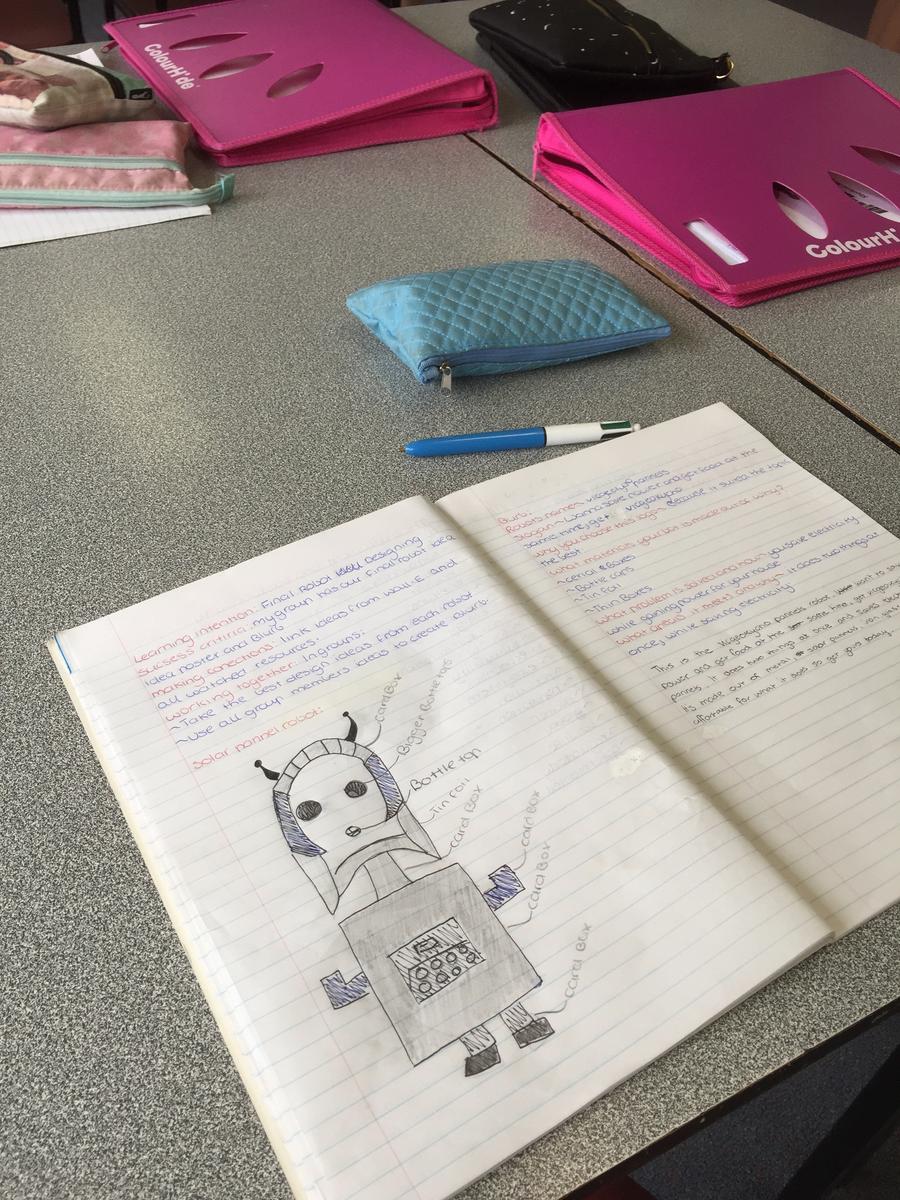 ColourH'de
ColourH'
Learning intention: Final Robot Designing
sucsess criteria: my group has our final robot idea
idea poster and Blurb
making conections: link ideas from wall-E and
all watched resources.
working together: In groups:
~Take the best design ideas from each robot
~use all group members ideas to create yours.
solar pannel robot:
card Box
Bigger Bottle tops
Bottle top
Tin foil
card Box
card Box
card Box
card Box
Blurb:
Robots name:
slogan~ wanna save power and get food at the
same time, get
why you choose this logo~ Because it suited the topic
the best
what materials you bot is made out of why?
~cerial Boxes
~Bottle caps
~Tin foil
~Thin Boxes
what problem is solved and how~ you save electricity
while gaining power for your house
what areas it meets and why~ it does two things at
once, while saving electricity
This is the pannels robot. want to save
power and get food at the same time, get
pannels. It does two things at once and saves
Its made out of metal, solar pannels,
affordable for what it does so get yours today...